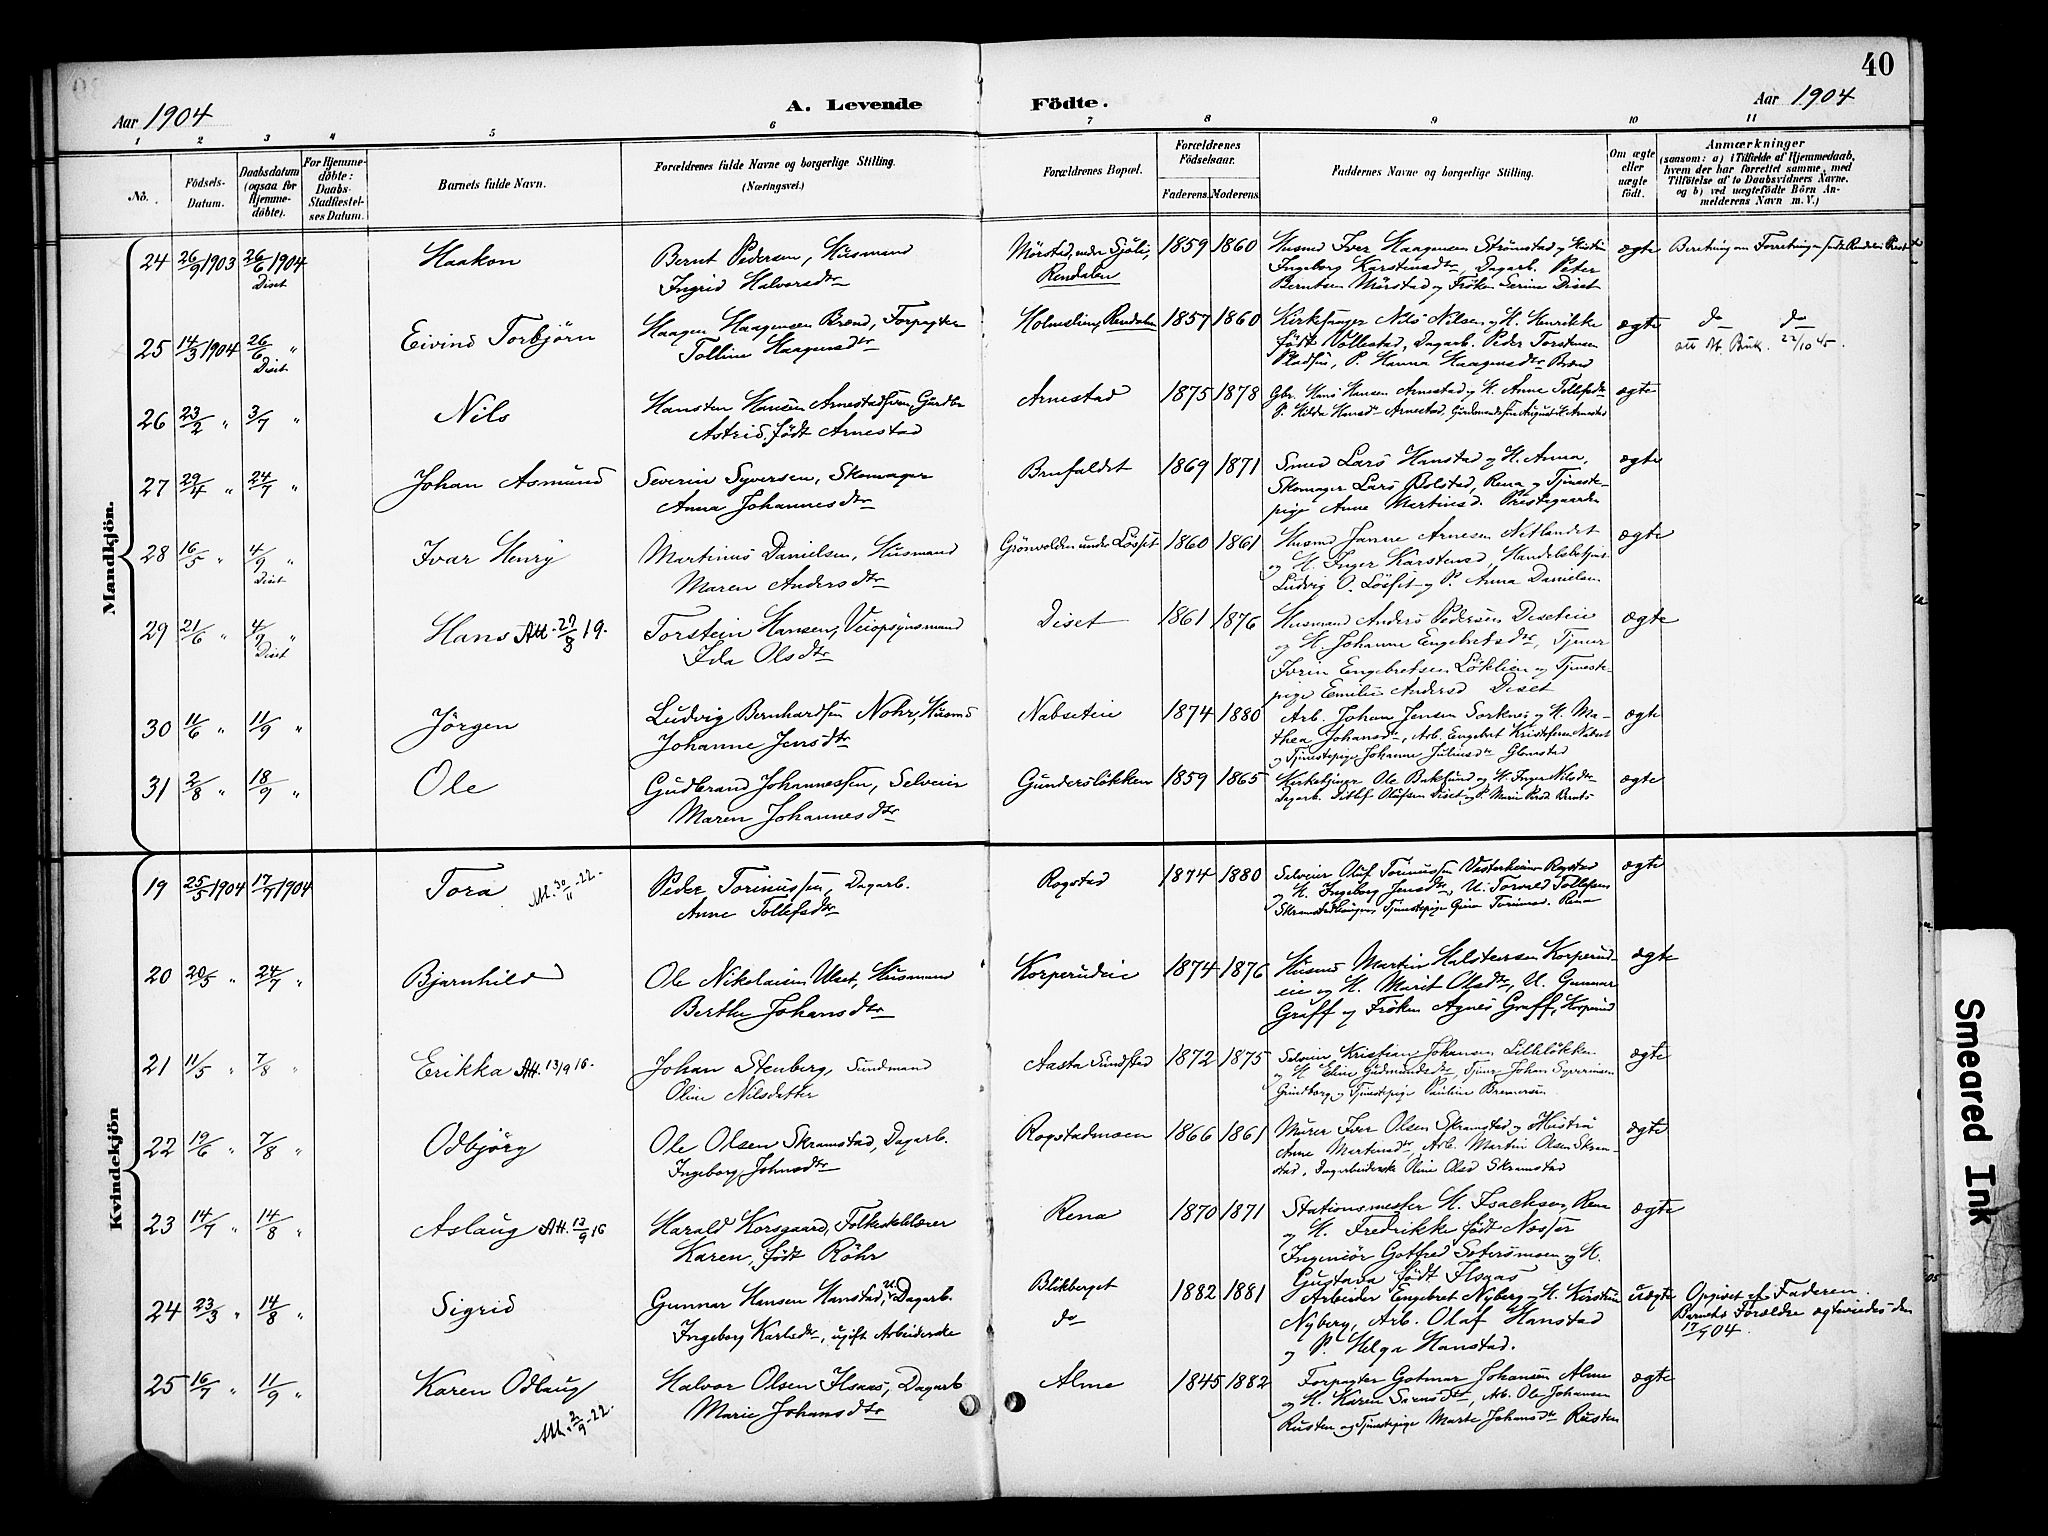 40
Aar 1904
A. Levende Födte.
Aar 1904
1 2 3 4 5 6 7 8 9 10 11
No.
Födsels-Datum.
Daabsdatum (ogsaa for Hjemme-döbte).
For Hjemme-döbte: Daabs-Stadfæstel-ses Datum.
Barnets fulde Navn.
Forældrenes fulde Navne og borgerlige Stilling.
(Næringsvei.)
Forældrenes Bopæl.
Forældrenes Födselsaar.
Faderens. Moderens.
Faddernes Navne og borgerlige Stilling.
Om ægte eller uægte födt.
Anmærkninger
(saasom: a) i Tilfælde af Hjemmedaab,
hvem der har forrettet samme, med
Tilföielse af to Daabsvidners Navne.
og b) ved uægtefödte Börn An-
melderens Navn m. V.)
Mandkjön.
24 26/9 1903 26/6 1904 Diset Haakon
Bernt Pedersen, Husmand
Ingrid Halvorsdtr
Mörstad, under Sjöli,
Rendalen
1859 1860
Husmd Iver Haagensen Strömstad og Hustru
Ingeborg Karstensdtr, Dagarb. Peter
Berntsen Mörstad og Fröken Serine Diset
ægte
25 14/3 1904 26/6 " Diset Eivind Torbjörn
Haagen Haagensen Brænd, Forpagter
Tolline Haagensdtr
Rendalen
1857 1860
Kirkesanger Nils Nilsen og H. Henrikke
födt Vollestad, Dagarb. Peder Torstensen
P. Hanna Haagensdtr Brænd
ægte
do do
22/10 45.
26 23/2 " 3/7 " Nils
Hansten Hansen Arnestad
Astrid, födt Arnestad
Arnestad
1875 1878
Gbr. Hans Hansen Arnestad og H. Anne Tollefsdtr
P. Hilda Hansdtr Arnestad
ægte
27 29/4 " 24/7 " Johan Asmund
Severin Syversen, Skomager
Anna Johannesdtr
Brufaldet
1869 1871
Smed Lars Hanstad og H. Anna,
Skomager Lars Bolstad, Rena og Tjeneste-
pige Anne Martinsd. Prestegaarden
ægte
28 16/5 " 4/9 " Diset Ivar Henry
Martinus Danielsen, Husmand
Maren Andersdtr
Grönvolden under Lösset
1860 1861
Husmd Janne Arnesen Netlandet
og H. Inger Karstensd, Handelsbetjent
Ludvig O. Lösset og P. Anna Danielsen
ægte
29 21/6 " 4/9 " Diset Hans Att. 27/8 19.
Torstein Hansen, Veiopsynsmand
Ida Olsdtr
Diset
1861 1876
Husmand Anders Pedersen Diseteie
og H. Johanne Engebretsdtr, Tjener
Iverin Engebretsen Löklien og Tjeneste-
pige Emilie Andersd Diset
ægte
30 11/6 " 11/9 " Jörgen
Ludvig Bernhardsen Nohr, Husmd
Johanne Jensdtr
Nabseteie
1874 1880
Arb. Johan Jensen Sorknes og H. Ma-
thea Johansdtr, Arb. Engebret Kristofersen Nabset
og Tjenestepige Johanne Juliusdtr Glomstad
ægte
31 2/8 " 18/9 " Ole
Gudbrand Johannessen, Selveier
Maren Johannesdtr
Gunderslökken
1859 1865
Kirketjener Ole Baklund og H. Inger Nilsdtr
Dagarb. Ditlef Olafsen Diset og P. Marie
ægte
Kvindekjön
19 25/5 1904 17/7 1904 Tora Att. 30/11-22.
Peder Torinussen, Dagarb.
Anne Tollefsdtr
Rogstad
1874 1880
Selveier Olaf Torinussen Vesterheim Rogstad
og H. Ingeborg Jensdtr, U. Torvald Tollefsen
Tjenestepige Gina Torinusd. Rena
ægte
20 20/5 " 24/7 " Bjarnhild
Ole Nikolaisen Ulset, Husmand
Berthe Johansdtr
Korperudeie
1874 1876
Husmd Martin Halstensen Korperud-
eie og H. Marit Olsdtr, U. Gunnar
Graff og Fröken Agnes Graff, Korperud
ægte
21 11/5 " 7/8 " Erikka Att. 13/9 16.
Johan Stenberg, Sundmand
Oline Nilsdatter
Aasta Sundsted
1872 1875
Selveier Kristian Johansen Lillelökken
og H. Eline Gudmundsdtr, Tjener Johan Syverinsen
Grindborg og Tjenestepige Pauline Bremersen
ægte
22 19/6 " 7/8 " Odbjörg
Ole Olsen Skramstad, Dagarb.
Ingeborg Johnsdtr
Rogstadmoen
1866 1861
Murer Iver Olsen Skramstad og Hustru
Anne Martensdtr, Arb. Martin Olsen Skram-
stad, Dagarbeiderske Oline Olsd Skramstad
ægte
23 14/7 " 14/8 " Aslaug Att. 13/9 16
Harald Korsgaard, Folkeskolelærer
Karen, födt Röhr
Rena
1870 1871
Stationsmester H. Isachsen, Rena
og H. Fredrikke födt Nosser
Ingeniör Gotfred Sætersmoen og H.
Gustava födt Ilsaas
ægte
24 23/3 " 14/8 " Sigrid
Gunnar Hansen Hanstad, U. Dagarb.
Ingeborg Karlsdtr, ugift Arbeiderske
Blikberget
do
1882 1881
Arbeider Engebret Nyberg og H. Kirstine
Nyberg, Arb. Olaf Hanstad
og P. Helga Hanstad.
uægte
Opgivet af Faderen.
Barnets Forældre ægteviedes den
25 16/7 " 11/9 " Karen Odlaug
Att. 2/9-22.
Halvor Olsen Ilsaas, Dagarb
Marie Johansdtr
Alme
1845 1882
Forpagter Gotmar Johansen Alme
og H. Karen Svensdtr, Arb. Ole Johansen
Rusten og Tjenestepige Marte Johansdtr Rusten
ægte
Smeared Ink